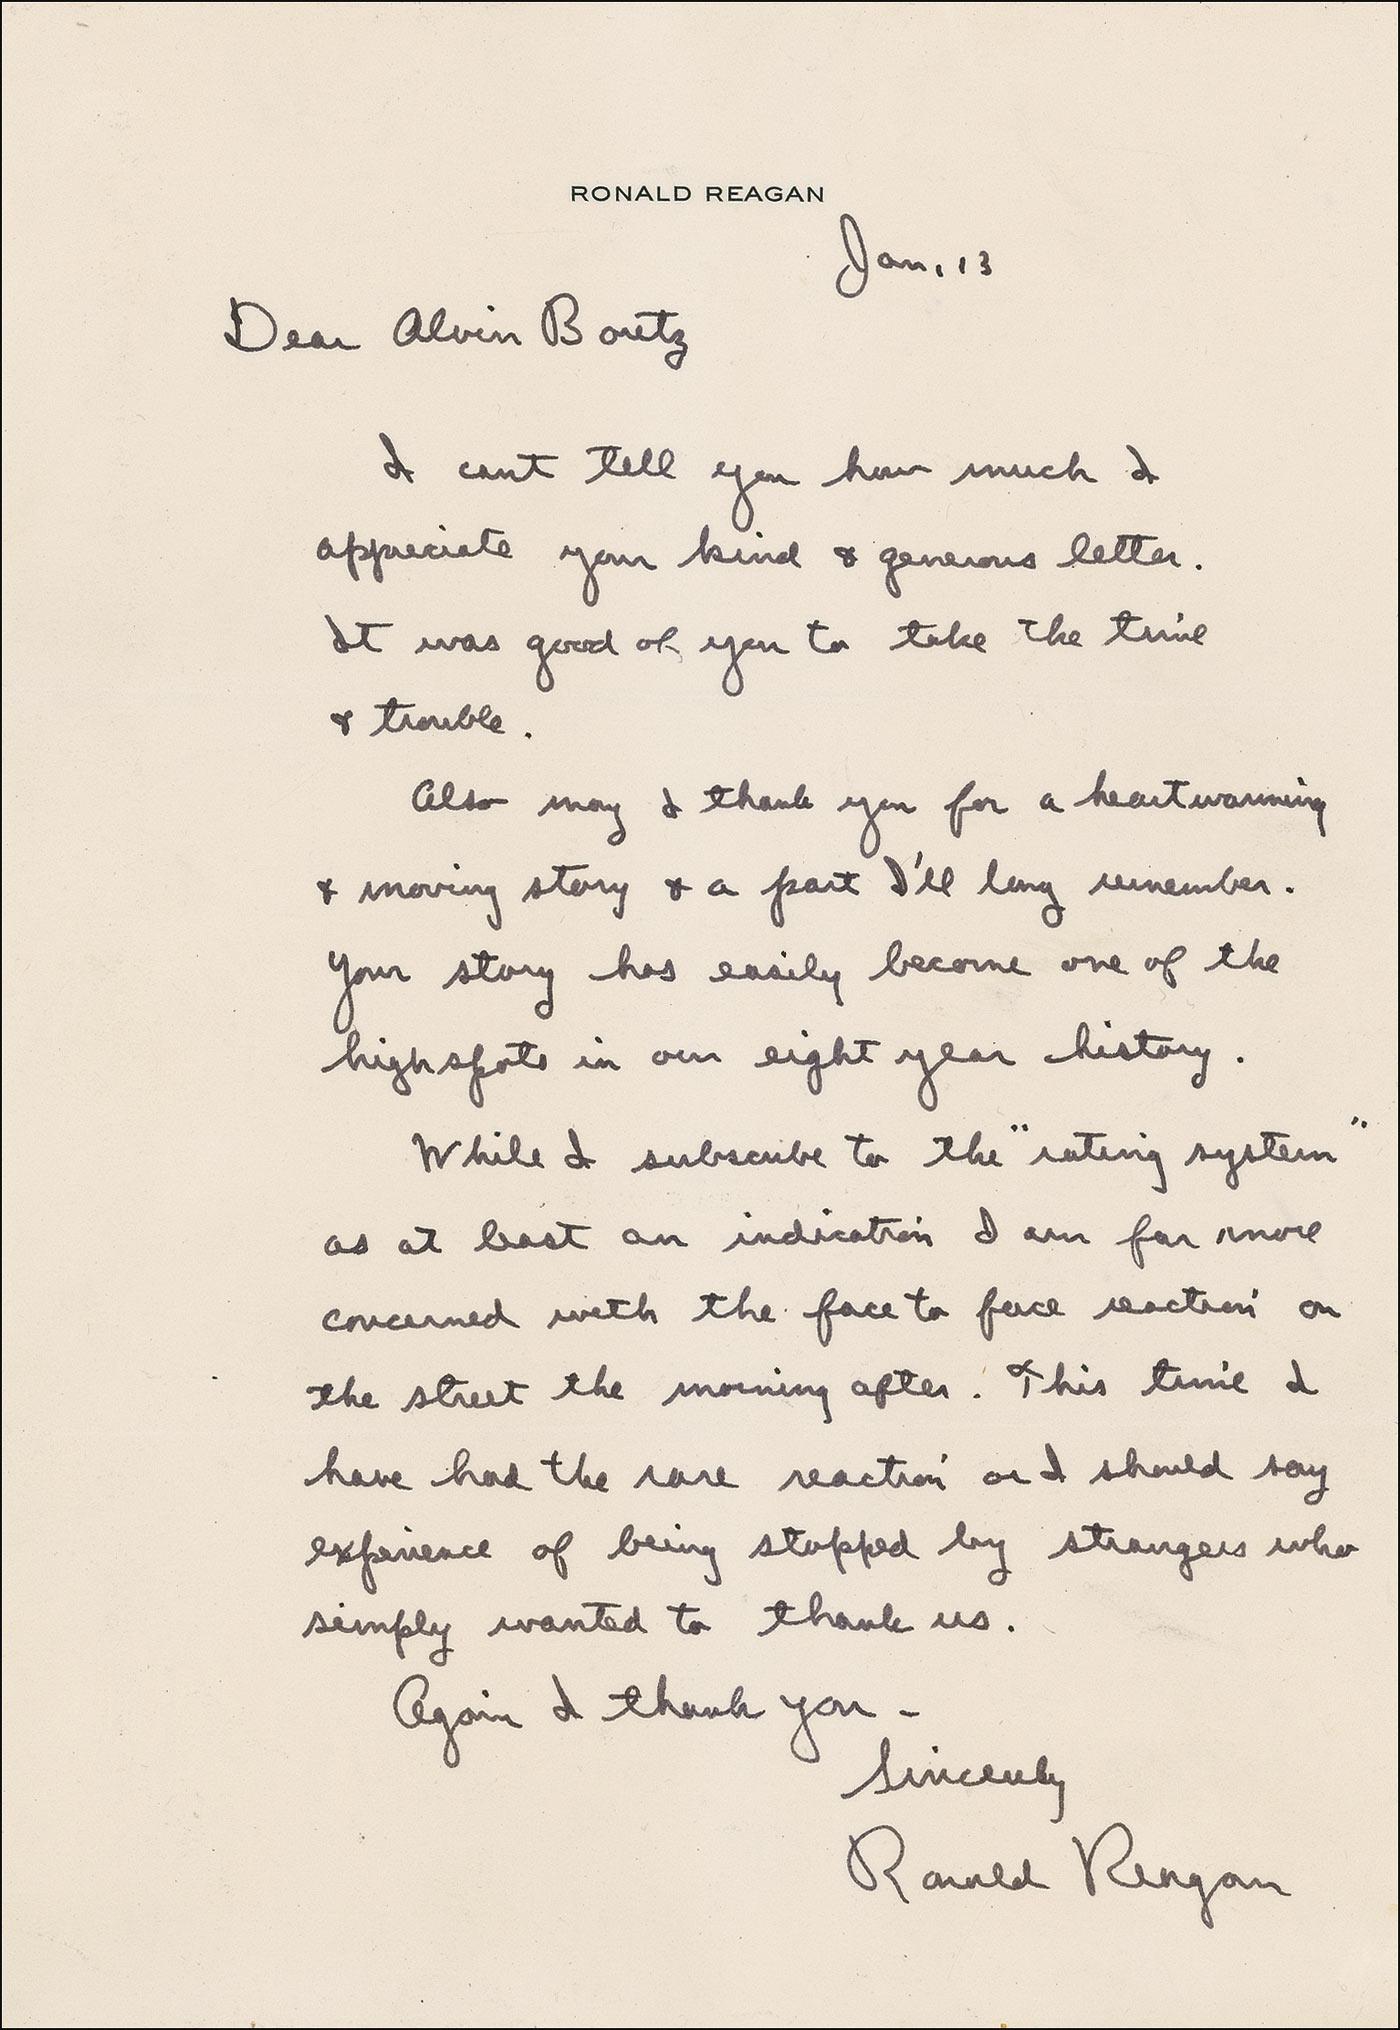 RONALD REAGAN
Jan. 13
Dear Alvin Boretz
I cant tell you how much I
appreciate your kind & generous letter.
It was good of you to take the time
& trouble.
Also may I thank you for a heartwarming
& moving story & a part I'll long remember.
Your story has easily become one of the
highspots in our eight year history.
While I subscribe to the "rating system"
as at least an indication I am far more
concerned with the face to face reaction on
the street the morning after. This time I
have had the rare reaction or I should say
experience of being stopped by strangers who
simply wanted to thank us.
Again I thank you -
Sincerely
Ronald Reagan